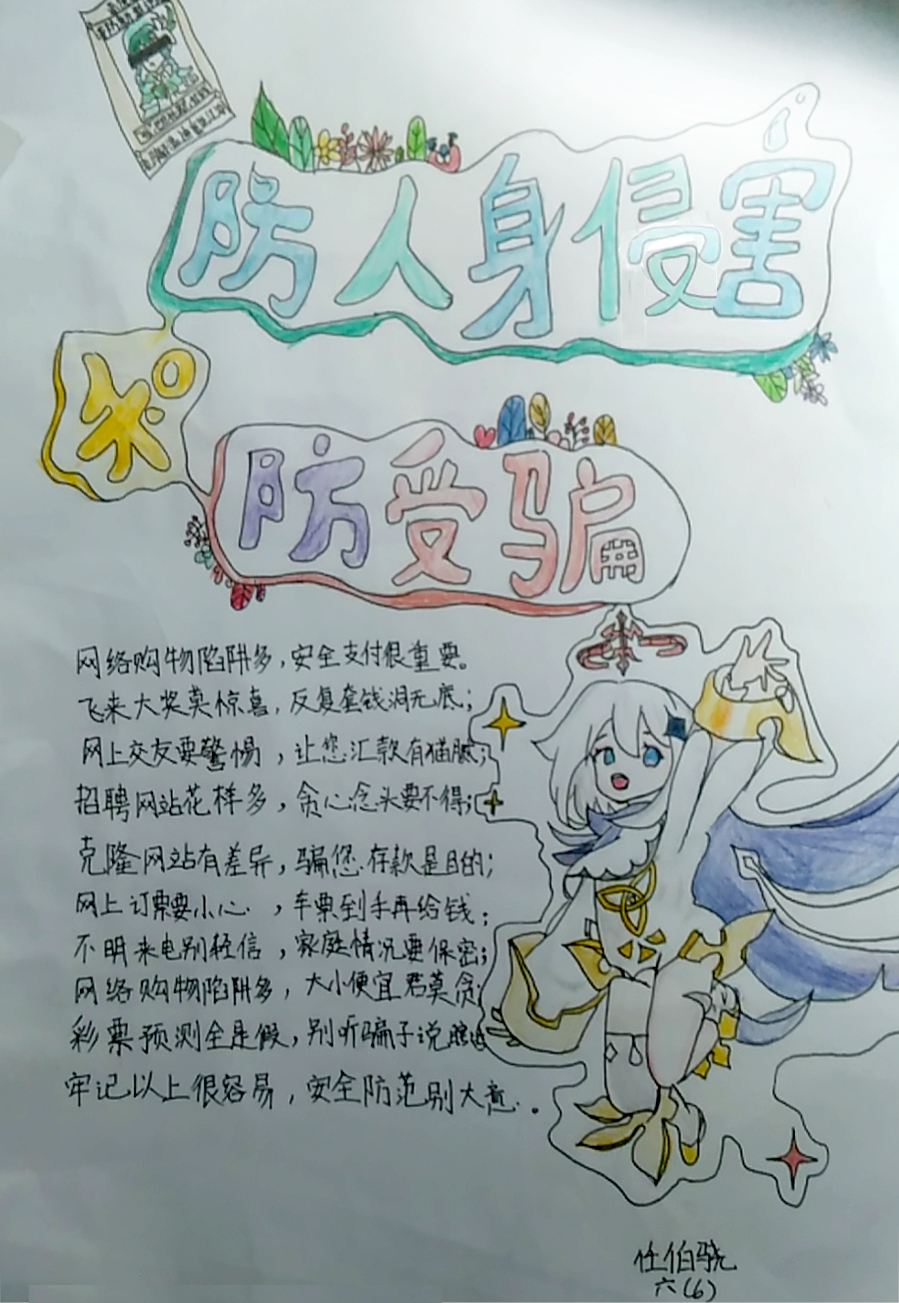 防人身侵害
防受骗
网络购物陷阱多,安全支付很重要。
飞来大奖莫惊喜,反复套钱洞无底;
网上交友要警惕,让您汇款有猫腻;
招聘网站花样多,贪心念头要不得;
克隆网站有差异,骗您存款是目的;
网上订票要小心,车票到手再给钱;
不明来电别轻信,家庭情况要保密;
网络购物陷阱多,大小便宜君莫贪;
彩票预测全是假,别听骗子说
牢记以上很容易,安全防范别大意。
任伯骁
六(6)